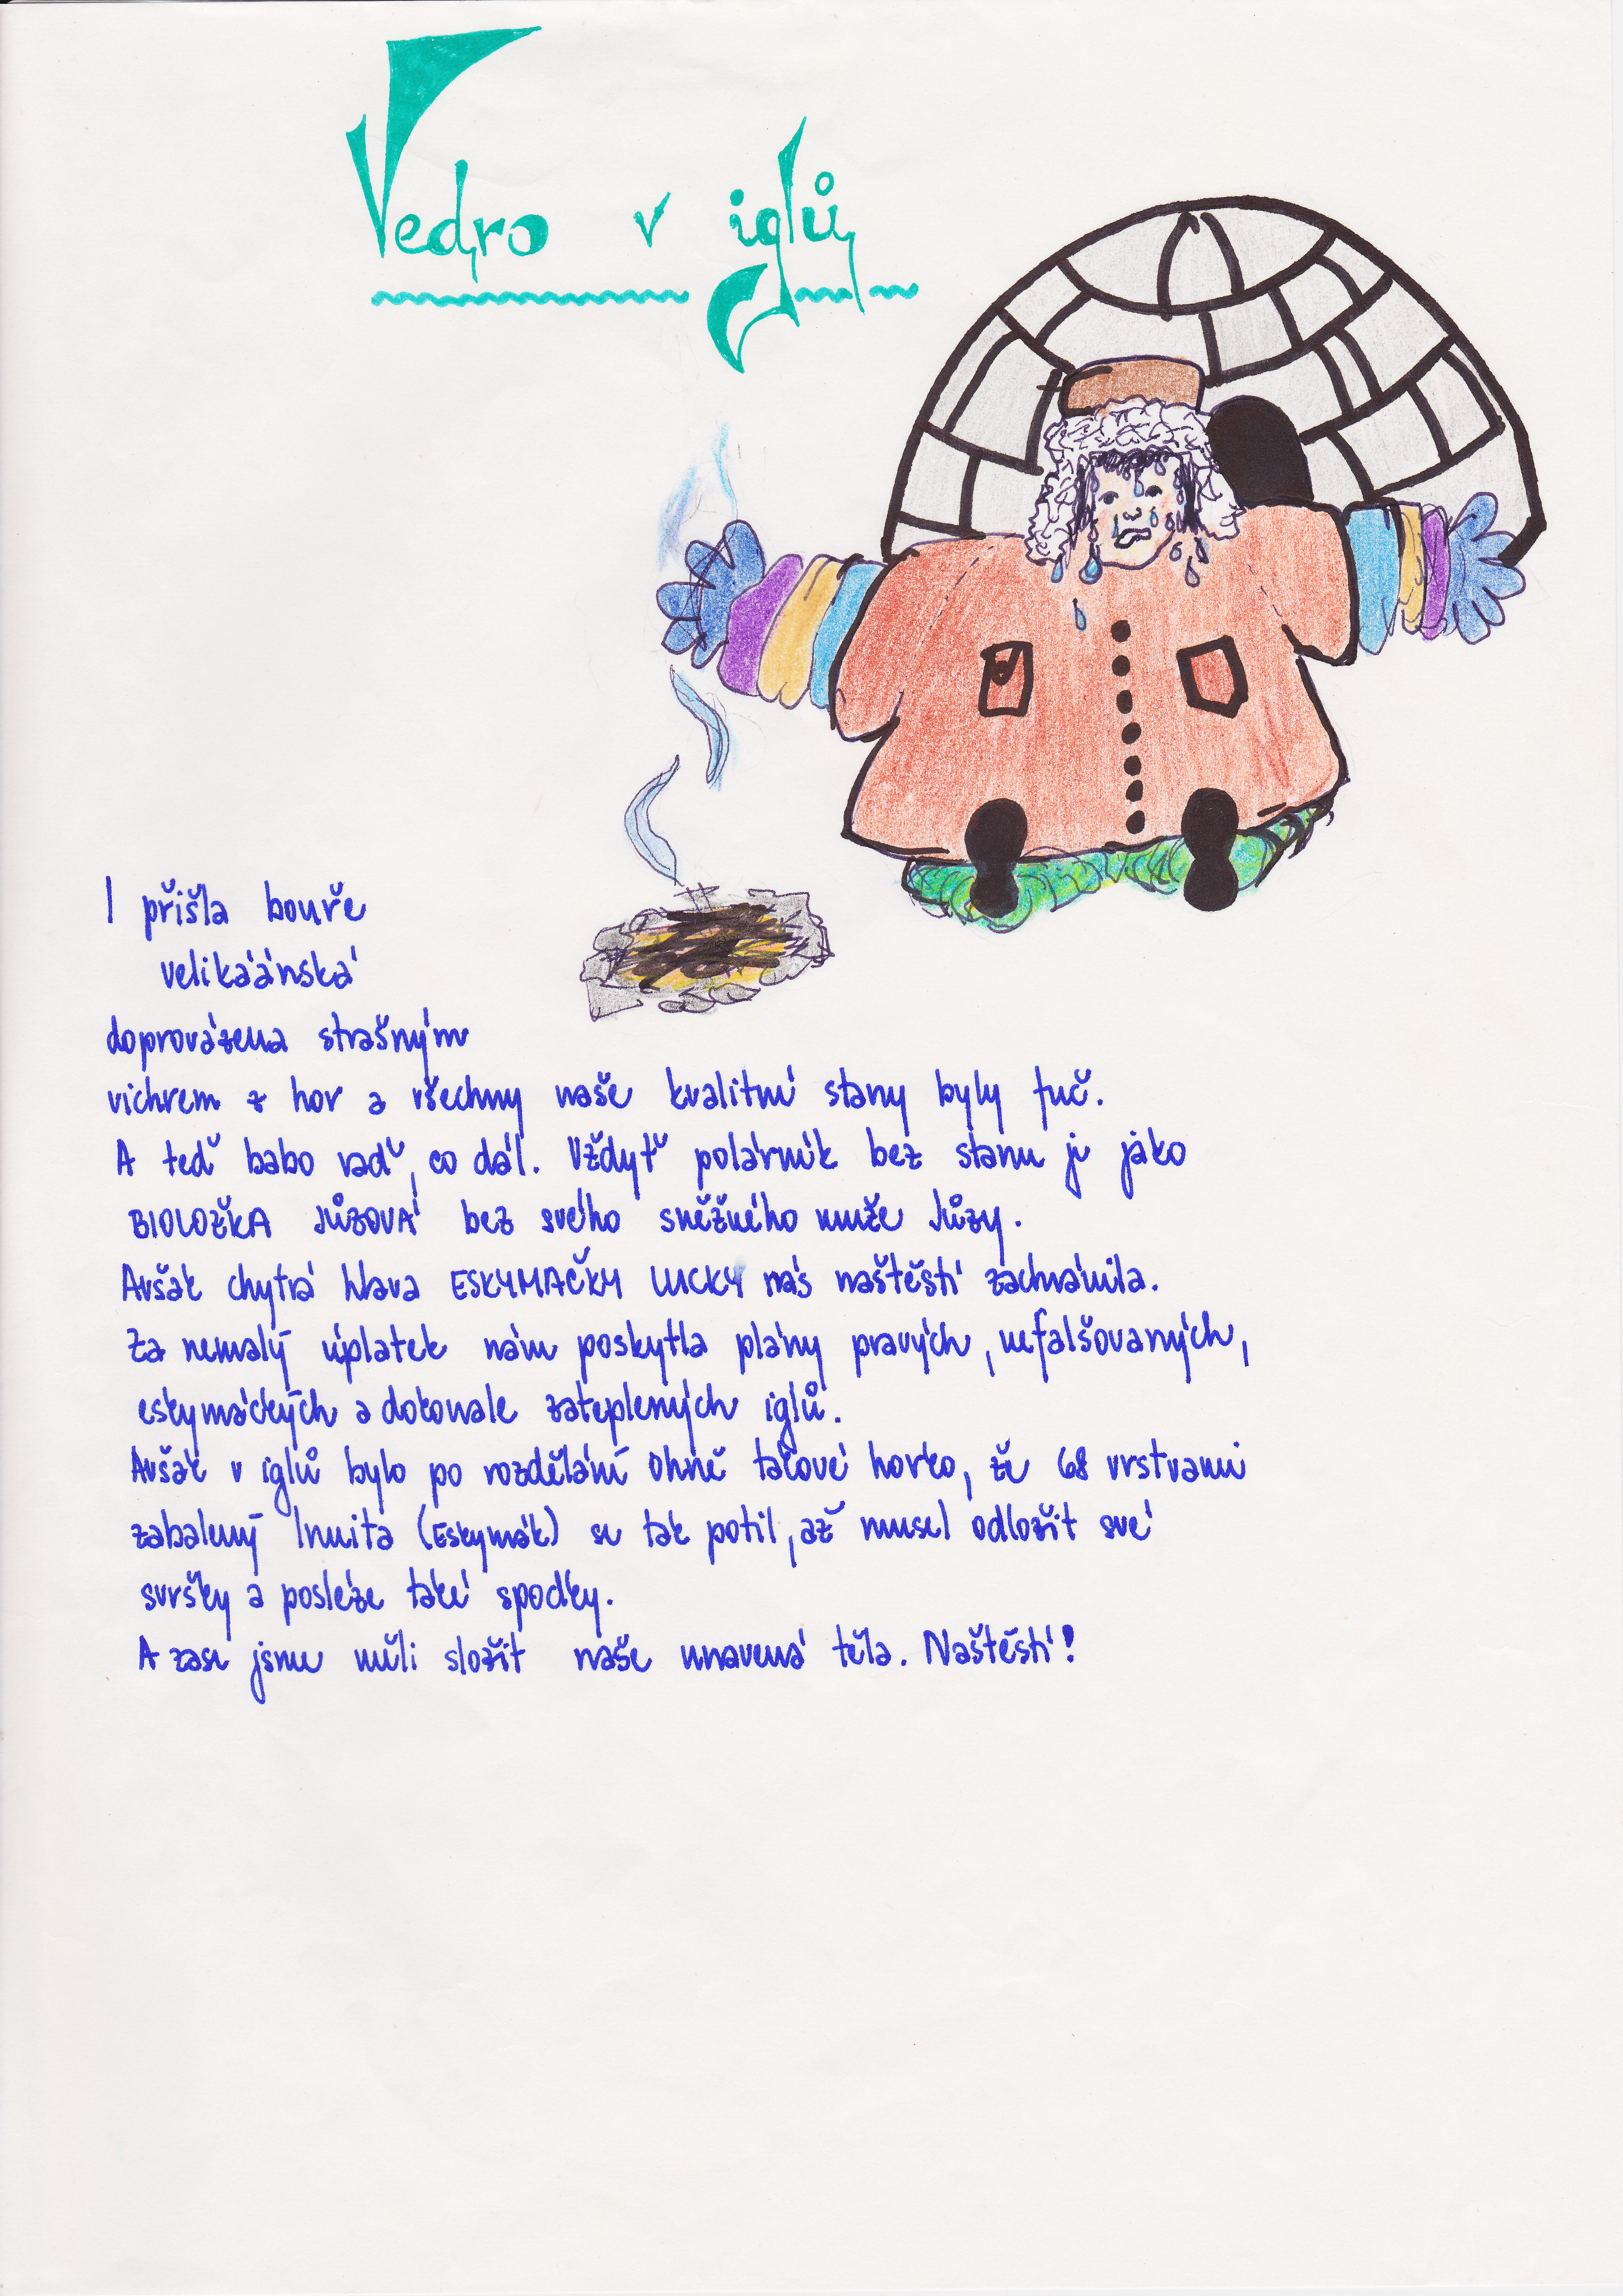 Vedro v iglů
I přišla bouře
velikáánská
doprovázena strašným
vichrem z hor a všechny naše kvalitní stany byly fuč.
A teď babo raď, co dál. Vždyť polárník bez stanu je jako
BIOLOŽKA JŮZOVÁ bez svého sněžného muže Jůzy.
Avšak chytrá hlava ESKYMAČKY LUCKY nás naštěstí zachránila.
Za nemalý úplatek nám poskytla plány pravých, nefalšovaných,
eskymáckých a dokonale zateplených iglů.
Avšak v iglů bylo po rozdělání ohně takové horko, že 68 vrstvami
zabalený Inuita (Eskymák) se tak potil, až musel odložit své
svršky a posléze také spodky.
A zase jsme měli složit naše unavená těla. Naštěstí!